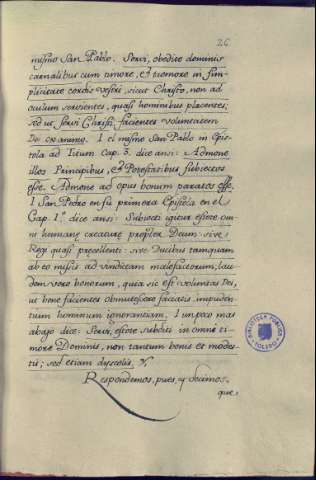 26
mismo San Pablo. Servi, obedite dominis
carnalibus cum timore, et tremore in sim-
plicitate cordis vestri, sicut Christo, non ad
oculum servientes, quasi hominibus placentes;
sed ut servi Christi, facientes voluntatem
Dei ex animo. I el mismo San Pablo in Epis-
tola ad Titum Cap. 3. dice ansi: Admone
illos Principibus, et Potestatibus subiectos
esse. Admone ad opus bonum paratos esse.
I San Pedro en su primera Epistola en el
Cap. 1.º dice ansi: Subiecti igitur estote om-
ni humanę creaturę propter Deum: sive
Regi quasi pręcellenti: sive Ducibus tamquam
ab eo missis ad vindictam malefactorum, lau-
dem vero bonorum, quia sic est voluntas Dei,
ut bene facientes obmutescere faciatis impuden-
tium hominum ignorantiam. I un poco mas
abajo dice: Servi, estote subditi in omni ti-
more Dominis, non tantum bonis et modes-
tis; sed etiam dyscolis, &.
Respondemos, pues, y decimos,
que,
BIBLIOTECA PUBLICA
TOLEDO